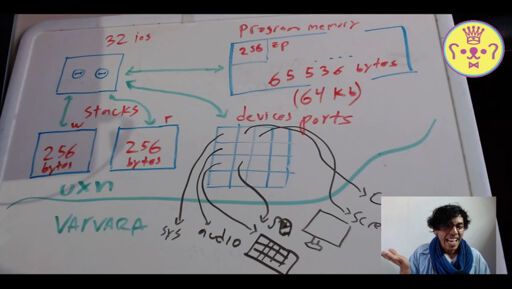 32 ins
program memory
256 zp
65 536 bytes
(64 kb)
stacks
w
r
devices ports
256
bytes
256
bytes
uxn
VARVARA
sys
audio